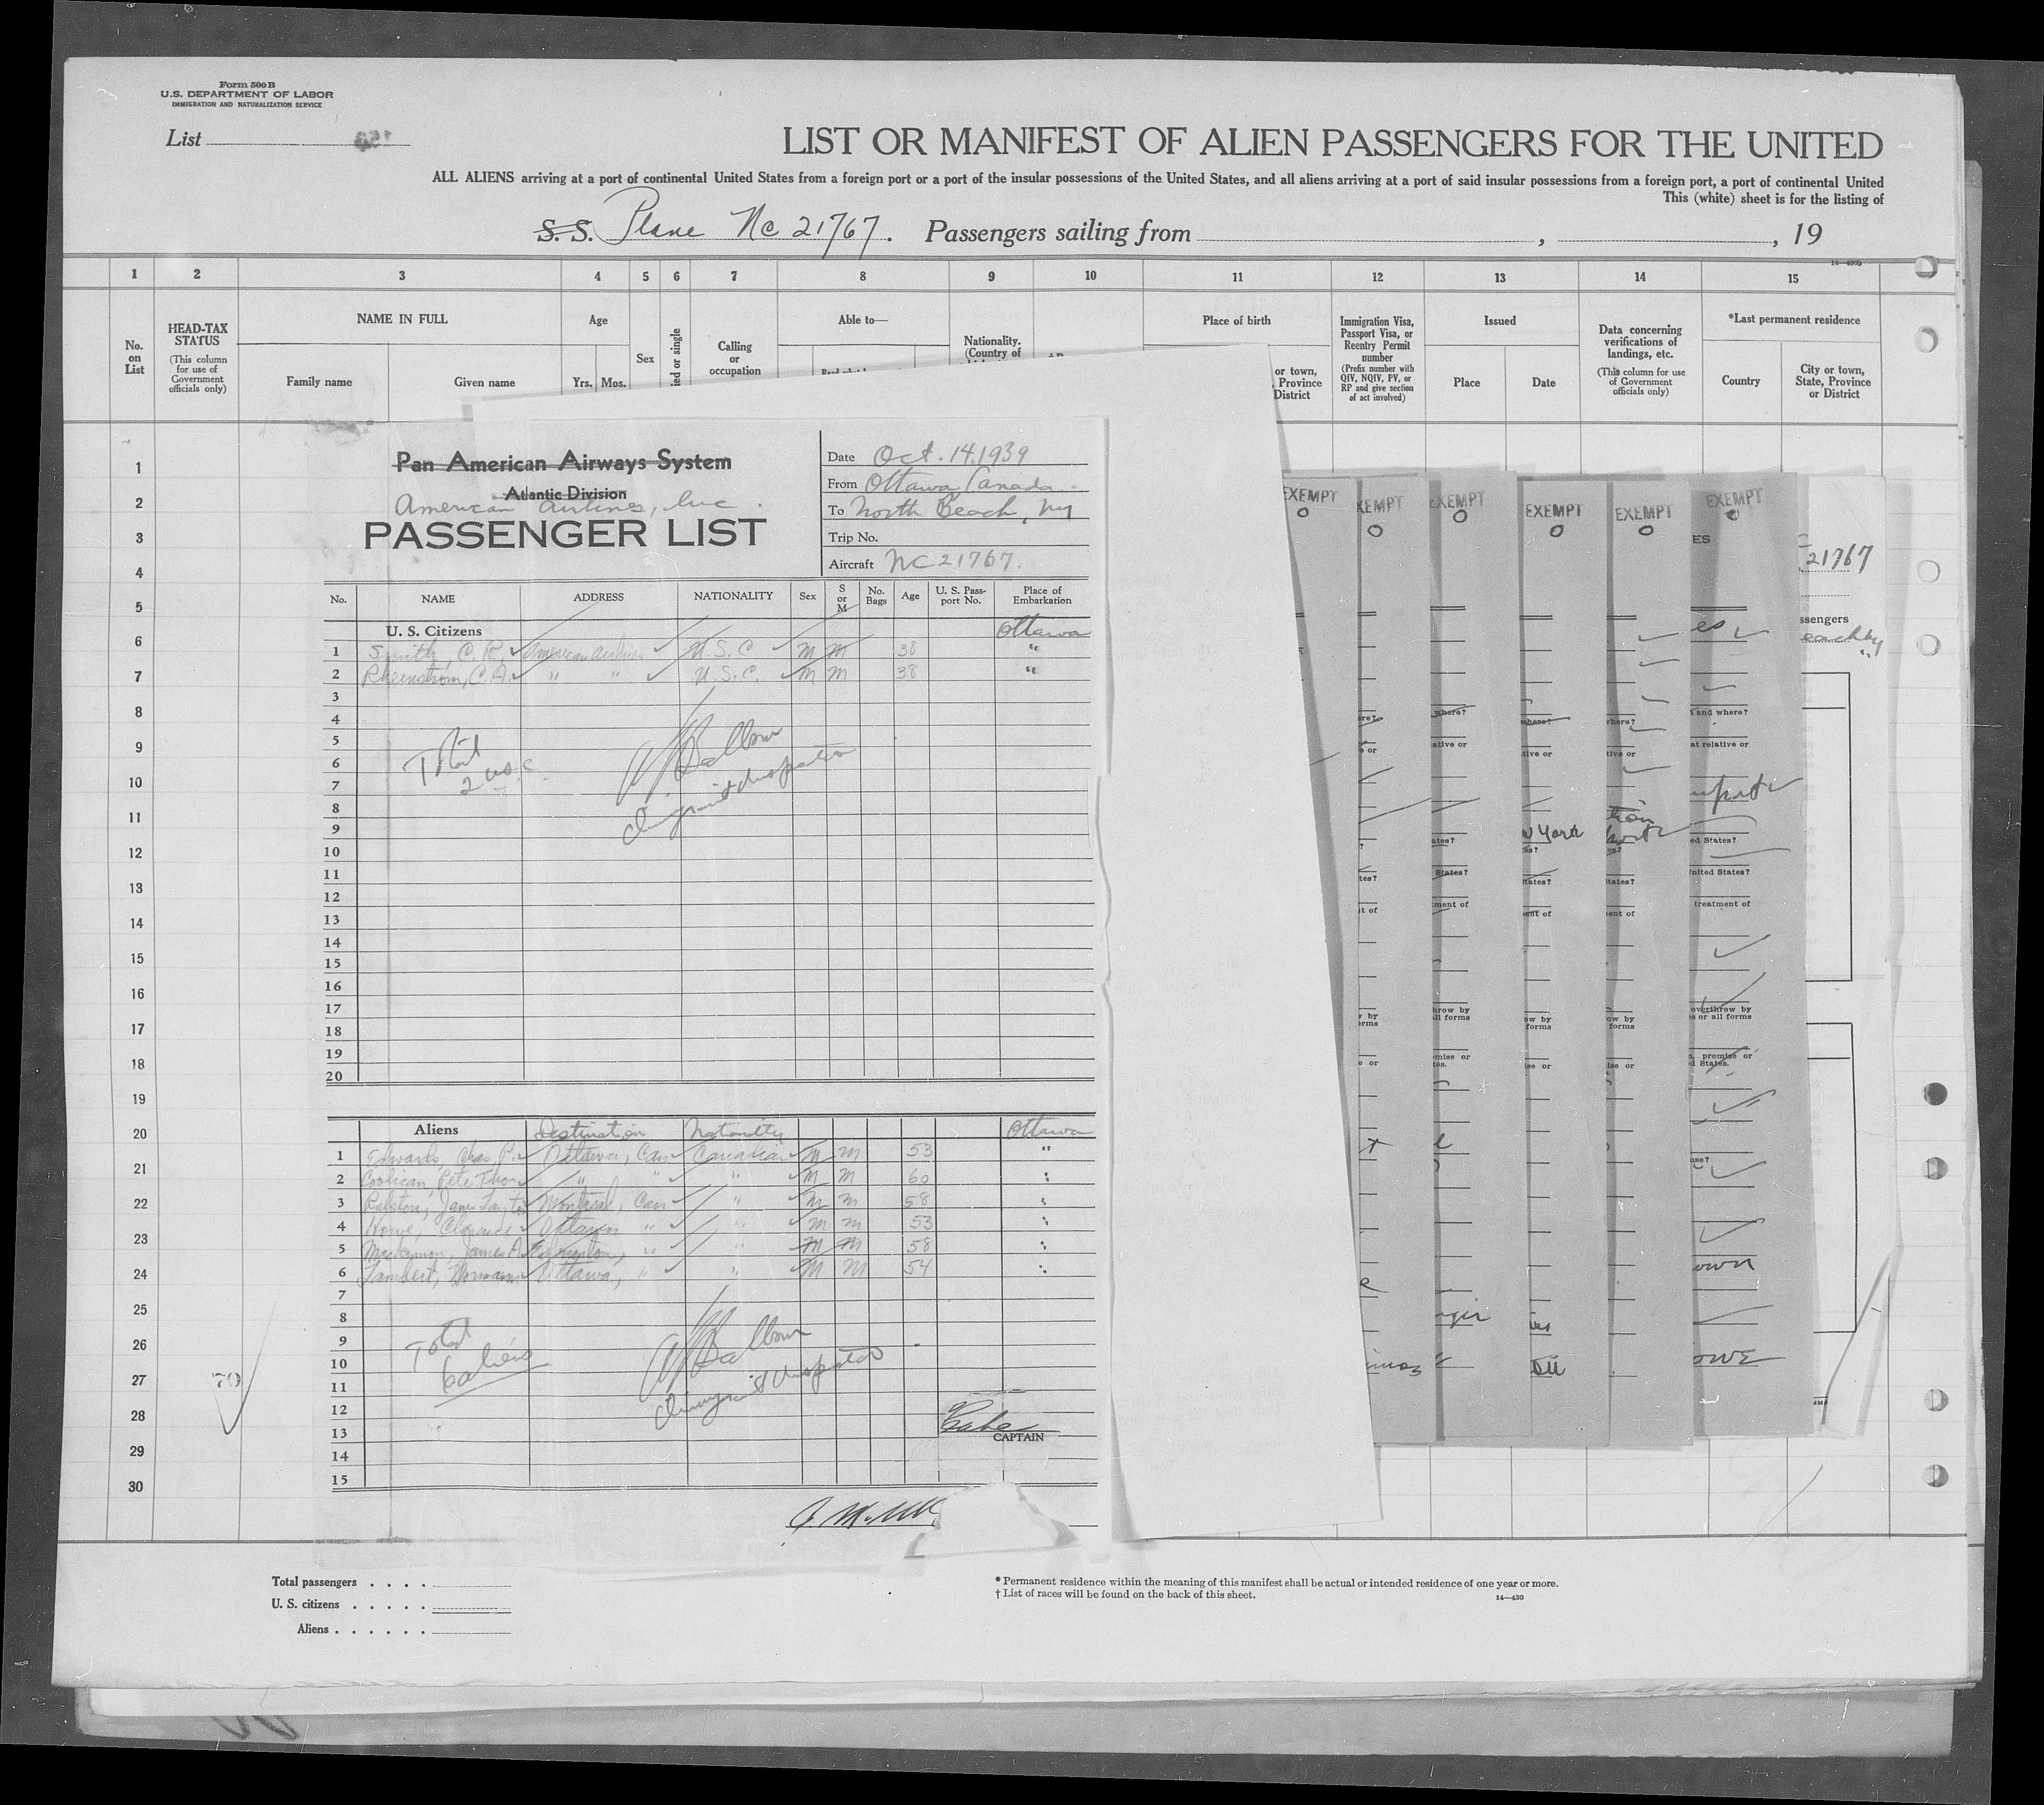 Form 500 B
U.S. DEPARTMENT OF LABOR
IMMIGRATION AND NATURALIZATION SERVICE
List
LIST OR MANIFEST OF ALIEN PASSENGERS FOR THE UNITED
ALL ALIENS arriving at a port of continental United States from a foreign port or a port of the insular possessions of the United States, and all aliens arriving at a port of said insular possessions from a foreign port, a port of continental United
This (white) sheet is for the listing of
S. S. Plane Nc 21767. Passengers sailing from , , 19
1 2 3 4 5 6 7 8 9 10 11 12 13 14 15
No. on List
HEAD-TAX STATUS
(This column for use of Government officials only)
NAME IN FULL
Family name Given name
Age
Yrs. Mos.
Sex
Calling or occupation
Able to—
Nationality. (Country of
Place of birth
or town, Province District
Immigration Visa, Passport Visa, or Reentry Permit number
(Prefix number with QIV, NQIV, PV, or RP and give section of act involved)
Issued
Place Date
Data concerning verifications of landings, etc.
(This column for use of Government officials only)
*Last permanent residence
Country
City or town, State, Province or District
1
2
3
4
5
6
7
8
9
10
11
12
13
14
15
16
17
18
19
20
21
22
23
24
25
26
27
28
29
30
70
Pan American Airways System
Atlantic Division
American Airlines, Inc.
PASSENGER LIST
Date Oct. 14. 1939
From Ottawa, Canada.
To North Beach, NY
Trip No.
Aircraft NC 21767.
No. NAME ADDRESS NATIONALITY Sex S or M No. Bags Age U. S. Passport No. Place of Embarkation
U. S. Citizens Ottawa
1 Smith, C. R. American Airlines U.S.C M M 38 "
2 Rheinstrom, C.A. " " U.S.C. M M 38 "
3
4
5
6
7
8
9
10
11
12
13
14
15
16
17
18
19
20
Total
2 usc
Immigrant Inspector
Aliens Destination Nationality Ottawa
1 Edwards, Chas P. Ottawa, Can Canadian M M 53 "
2 Coolican, " " " M M 60 "
3 Ralston, James Montreal, Can " M M 58 "
4 Howe, Clarence Ottawa " " M M 53 "
5 MacKinnon, James A. Edmonton, " " M M 58 "
6 Lambert, Norman Ottawa, " " M M 54 "
7
8
9
10
11
12
13
14
15
Total
6 aliens
Immigrant Inspector
CAPTAIN
EXEMPT
EXEMPT
EXEMPT
EXEMPT
EXEMPT
EXEMPT
21767
Total passengers
U. S. citizens
Aliens
* Permanent residence within the meaning of this manifest shall be actual or intended residence of one year or more.
† List of races will be found on the back of this sheet.
14—430